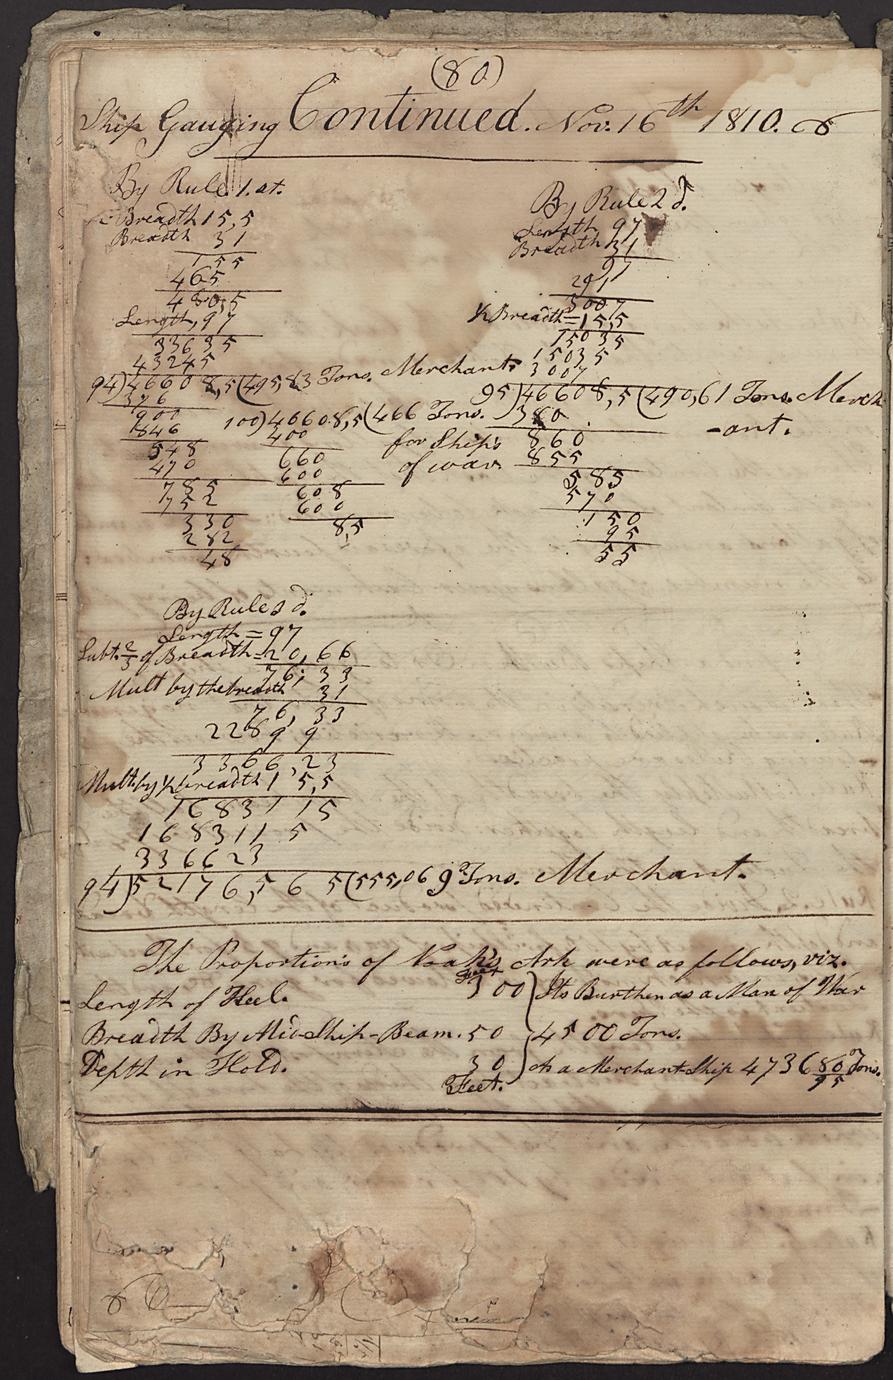 (80)
Ship Gauging Continued. Nov. 16th 1810.
By Rule 1.st.
½ Breadth 15,5
Breadth 31
155
465
480,5
Length, 97
33635
43245
94)46608,5(495,83 Tons. Merchant.
376
900
846
548
470
785
752
330
282
48
100)46608,5(466 Tons.
400
for Ships
660
of war
600
608
600
8,5
By Rule 2d.
Length 97
Breadth 31
97
291
3007
½ Breadth = 15,5
15035
15035
3007
95)46608,5(490,61 Tons. Merch
-ant.
380
860
855
585
570
150
95
55
By Rule 3d.
Length = 97
Subt. 2/3 of Breadth = 20,66
76,33
Mult by the breadth 31
76,33
2289 9
3366,23
Mult. by ½ breadth 15,5
1683115
1683115
336623
94)52176,565(555,069 Tons. Merchant.
The Proportions of Noah's Ark were as follows, viz.
Feet
Length of Keel. 300 } Its Burthen as a Man of War
Breadth By Mid-Ship-Beam. 50 } 4500 Tons.
Depth in Hold. 30 } As a Merchant Ship 4736 80/95 Tons.
Feet.